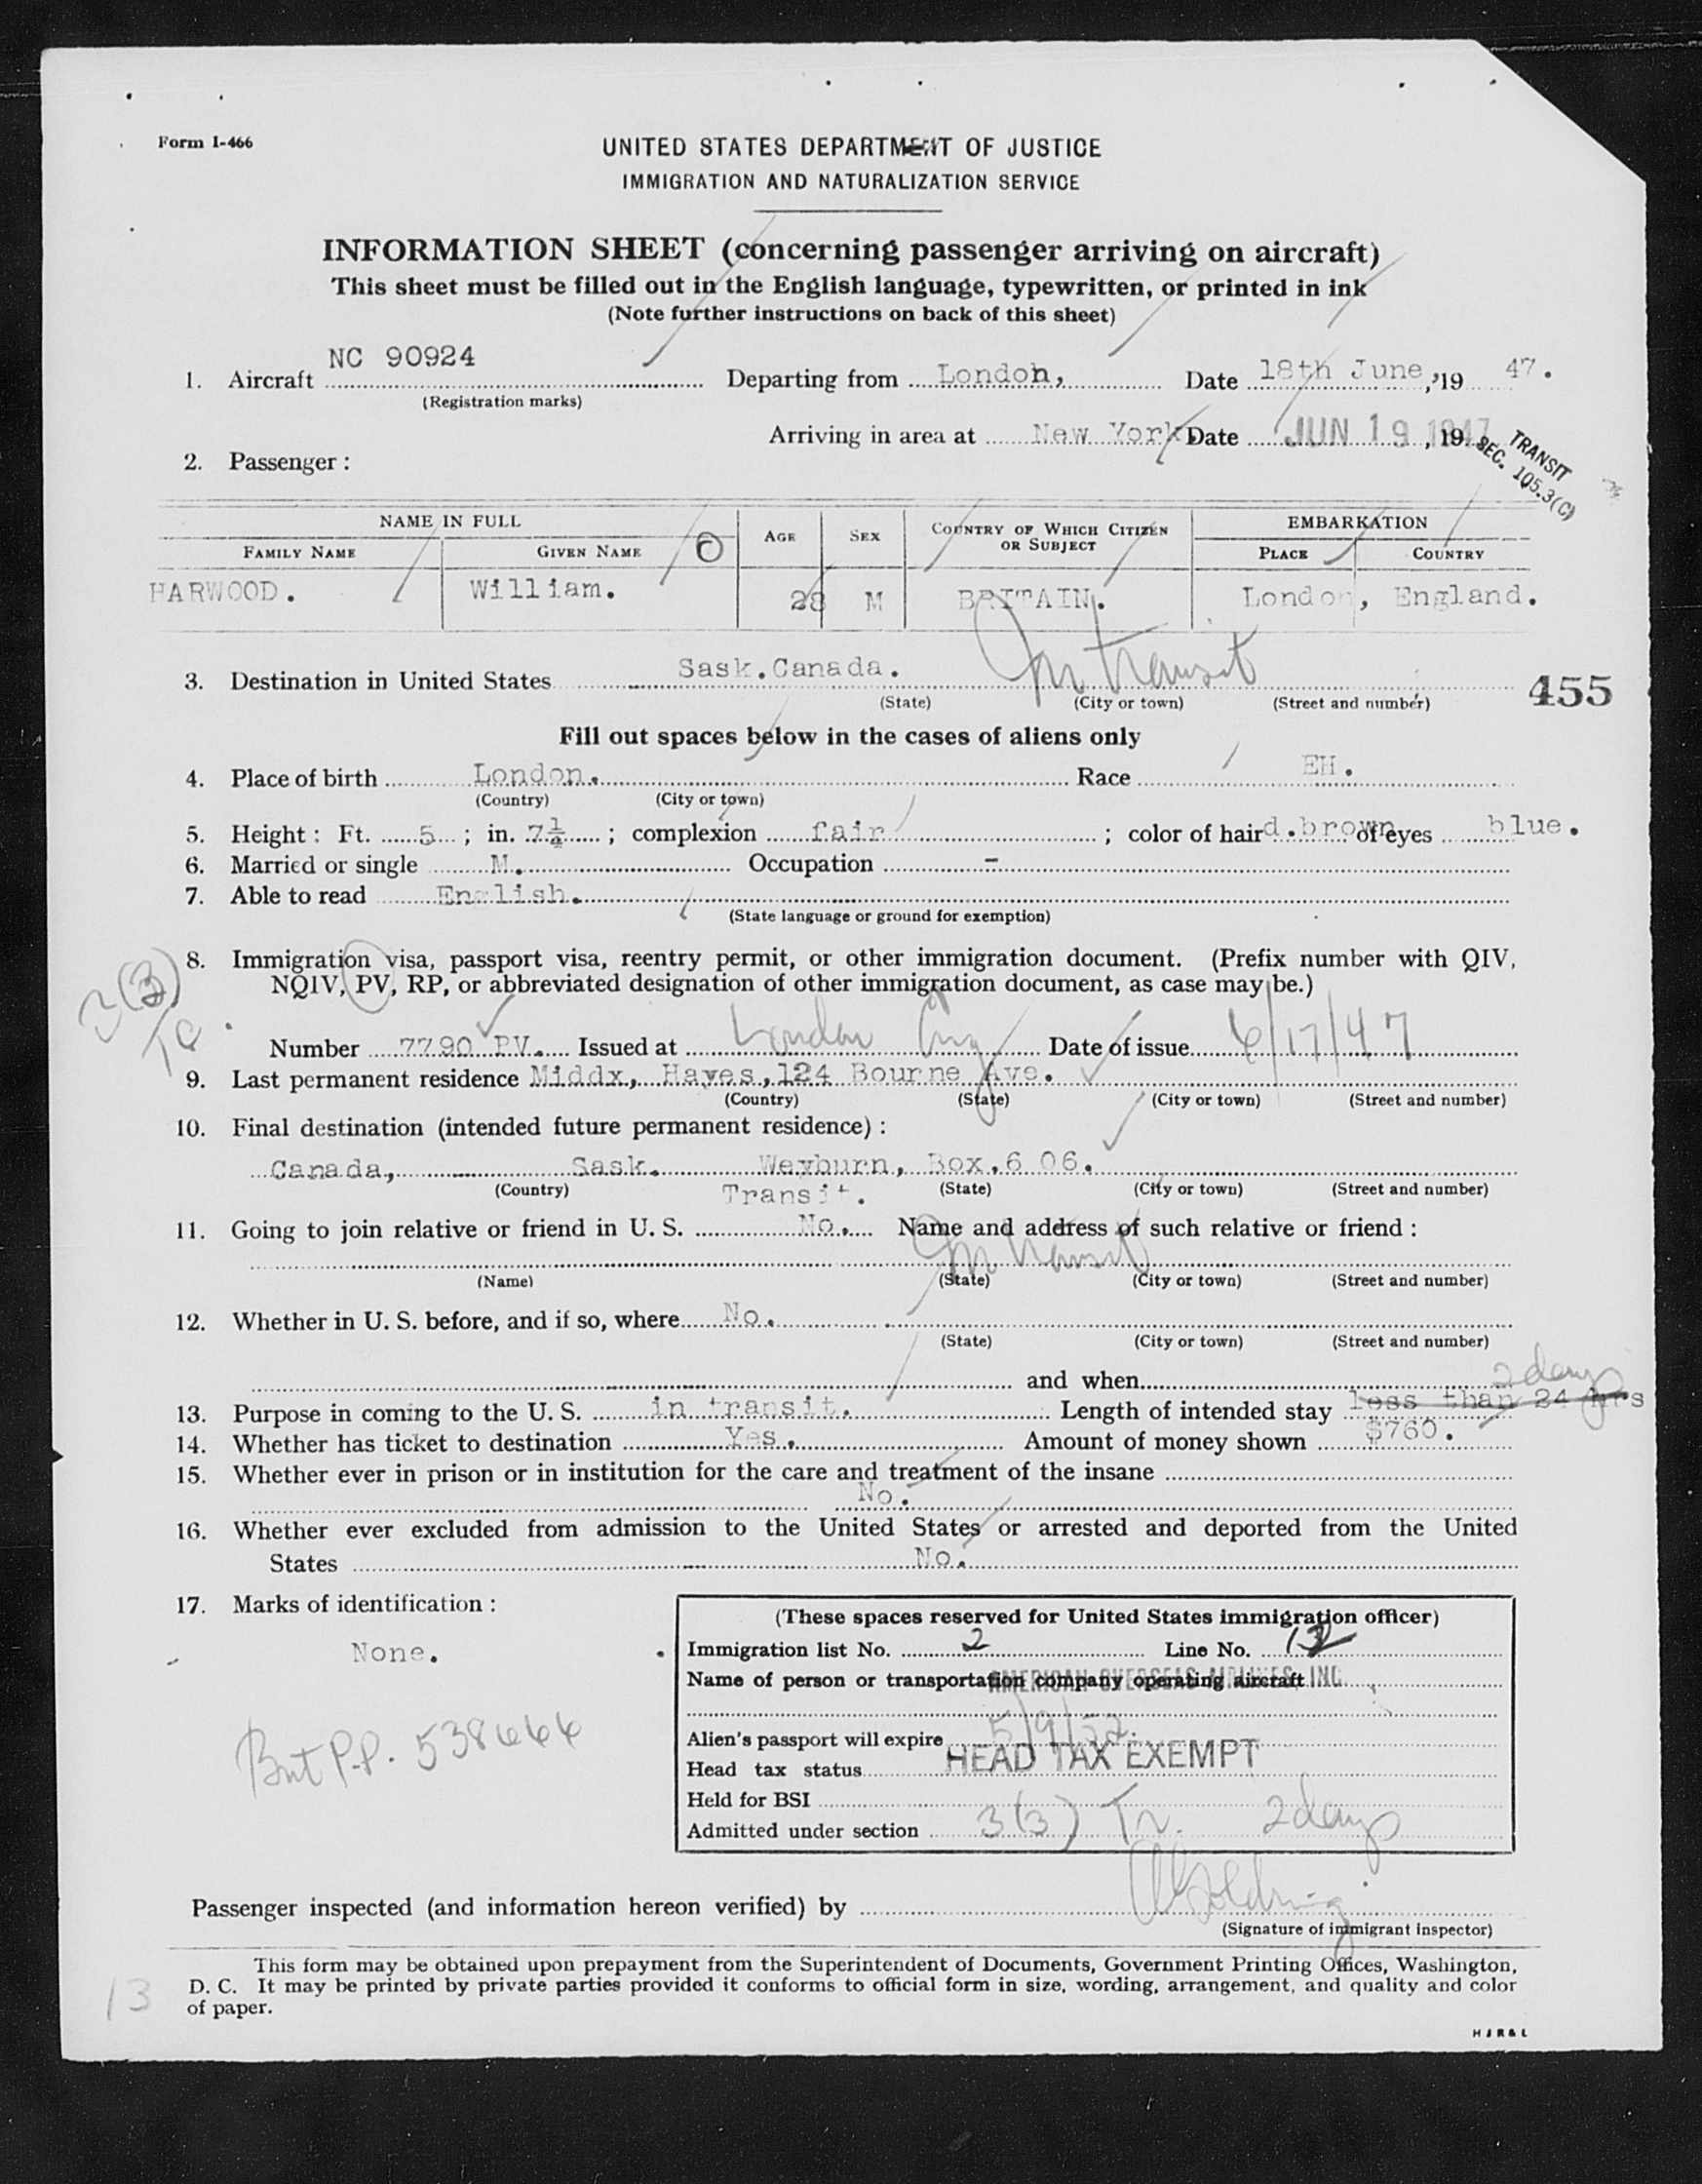 Form I-466
UNITED STATES DEPARTMENT OF JUSTICE
IMMIGRATION AND NATURALIZATION SERVICE
INFORMATION SHEET (concerning passenger arriving on aircraft)
This sheet must be filled out in the English language, typewritten, or printed in ink
(Note further instructions on back of this sheet)
1. Aircraft NC 90924 Departing from London, Date 18th June, 19 47.
(Registration marks)
Arriving in area at New York Date JUN 19 1947, 19
TRANSIT
SEC. 105.3(C)
2. Passenger :
NAME IN FULL AGE SEX COUNTRY OF WHICH CITIZEN OR SUBJECT EMBARKATION
FAMILY NAME GIVEN NAME PLACE COUNTRY
HARWOOD. William. 28 M BRITAIN. London, England.
3. Destination in United States Sask. Canada. In transit
(State) (City or town) (Street and number)
455
Fill out spaces below in the cases of aliens only
4. Place of birth London. Race EH.
(Country) (City or town)
5. Height : Ft. 5 ; in. 7½ ; complexion fair ; color of hair d.brown of eyes blue.
6. Married or single M. Occupation -
7. Able to read English.
(State language or ground for exemption)
8. Immigration visa, passport visa, reentry permit, or other immigration document. (Prefix number with QIV,
NQIV, PV, RP, or abbreviated designation of other immigration document, as case may be.)
3(3)
Number 7790 PV. Issued at London Eng Date of issue 6/17/47
9. Last permanent residence Middx, Hayes, 124 Bourne Ave.
(Country) (State) (City or town) (Street and number)
10. Final destination (intended future permanent residence) :
Canada, Sask. Weyburn, Box.6 06.
(Country) (State) (City or town) (Street and number)
Transit.
11. Going to join relative or friend in U. S. No. Name and address of such relative or friend :
In transit
(Name) (State) (City or town) (Street and number)
12. Whether in U. S. before, and if so, where No.
(State) (City or town) (Street and number)
and when
2 days
13. Purpose in coming to the U. S. in transit. Length of intended stay less than 24 hrs
14. Whether has ticket to destination Yes. Amount of money shown $760.
15. Whether ever in prison or in institution for the care and treatment of the insane
No.
16. Whether ever excluded from admission to the United States or arrested and deported from the United
States No.
17. Marks of identification :
None.
Brit P.P. 538666
(These spaces reserved for United States immigration officer)
Immigration list No. 2 Line No.
Name of person or transportation company operating aircraft AMERICAN OVERSEAS AIRLINES, INC.
Alien's passport will expire 5/9/52.
Head tax status HEAD TAX EXEMPT
Held for BSI
Admitted under section 3(3) Tr. 2 days
Passenger inspected (and information hereon verified) by
(Signature of immigrant inspector)
This form may be obtained upon prepayment from the Superintendent of Documents, Government Printing Offices, Washington,
D. C. It may be printed by private parties provided it conforms to official form in size, wording, arrangement, and quality and color
of paper.
13
H J R & L